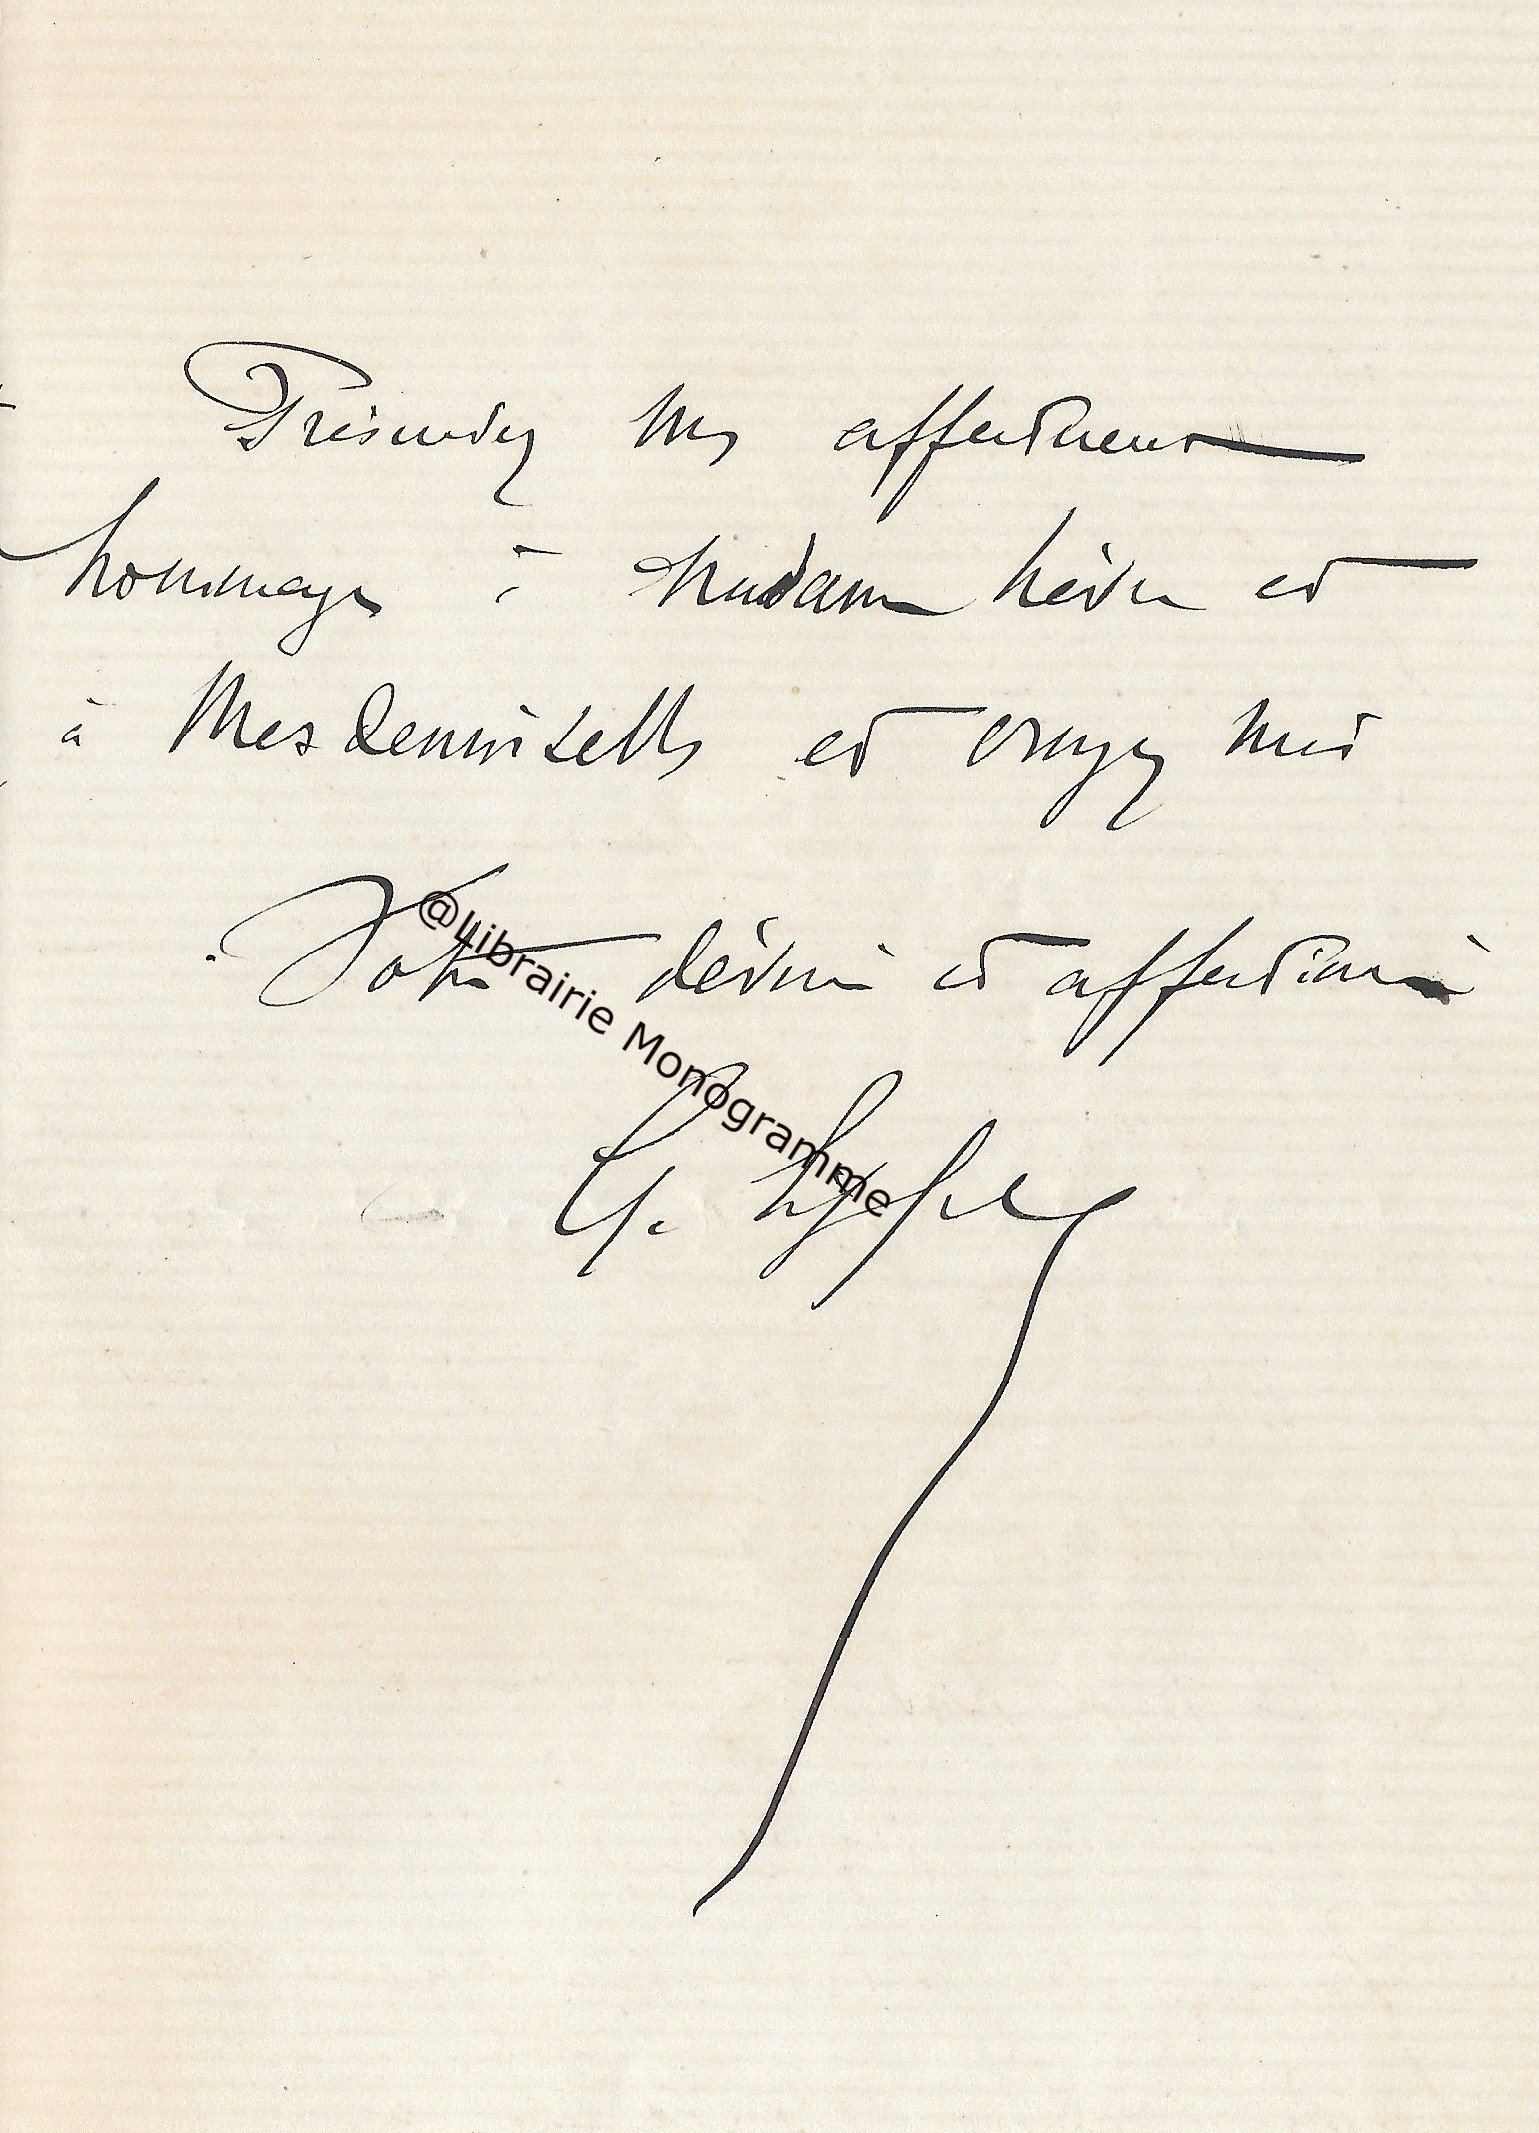 Présentez mes affectueux
hommages à Madame
et
à Mesdemoiselles et croyez moi
Votre dévoué et affectionné
@Librairie Monogramme
G.